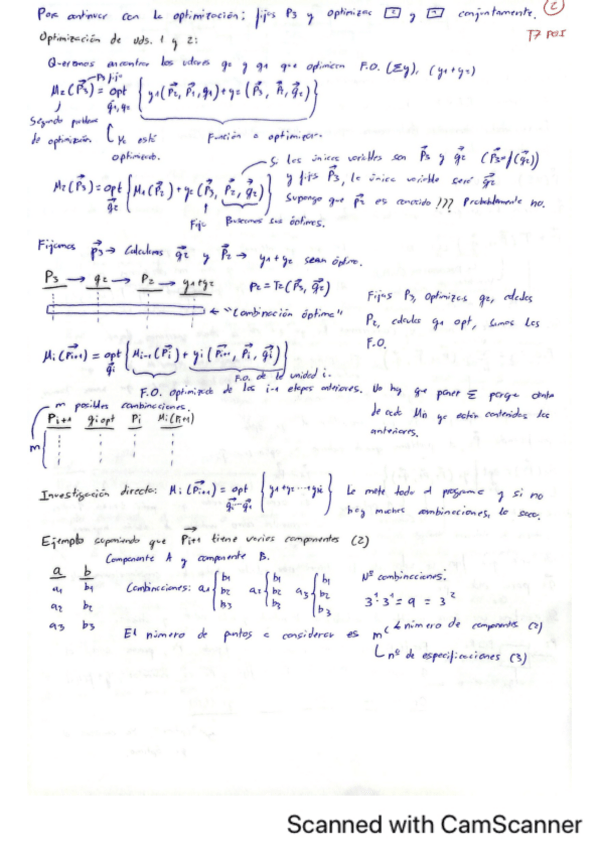 Para continuar con la optimización; fijas P3 y optimizas [2] y [1] conjuntamente. (2)
T7 POS
Optimización de Uds. 1 y 2:
Queremos encontrar los valores q2 y q1 que optimicen F.O. (Σy), (y1+y2)
M2(P3) = opt { y1(P2, P1, q1) + y2(P3, P2, q2) }
q1,q2
Segundo problema de optimización.
Ya está optimizando.
Función a optimizar.
Si las únicas variables son P3 y q2 (P3=f(q2))
y fijo P3, la única variable será q2
M2(P3) = opt { M1(P2) + y2(P3, P2, q2) }
q2
Supongo que P2 es conocido !!! Probablemente no.
Fijo Buscamos sus óptimos.
Fijamos P3 → Calculamos q2 y P2 → y1+y2 sean óptimo.
P3 → q2 → P2 → y1+y2
P2 = T2(P3, q2)
← "Combinación óptima"
Fijas P3, optimizas q2, calculas
P2, calculas q1 opt, sumas las
F.O.
Mi(Pi+1) = opt { Mi-1(Pi) + yi(Pi+1, Pi, qi) }
qi
F.O. de la unidad i.
F.O. optimizada de las i-1 etapas anteriores. No hay que poner Σ porque dentro
de cada Mn ya están contenidas las
anteriores.
m posibles combinaciones.
Pi+1 qi opt Pi Mi(Pi+1)
m
Investigación directa: Mi(Pi+1) = opt { y1+y2+...+yi }
qi...q1
Le mete todo al programa y si no
hay muchas combinaciones, lo saca.
Ejemplo suponiendo que Pi+1 tiene varios componentes (2)
Componente A y componente B.
a b
a1 b1
a2 b2
a3 b3
Combinaciones: a1 { b1 b2 b3 a2 { b1 b2 b3 a3 { b1 b2 b3
Nº combinaciones:
3¹·3¹ = 9 = 3²
El número de puntos a considerar es m^c
número de componentes (2)
nº de especificaciones (3)
Scanned with CamScanner